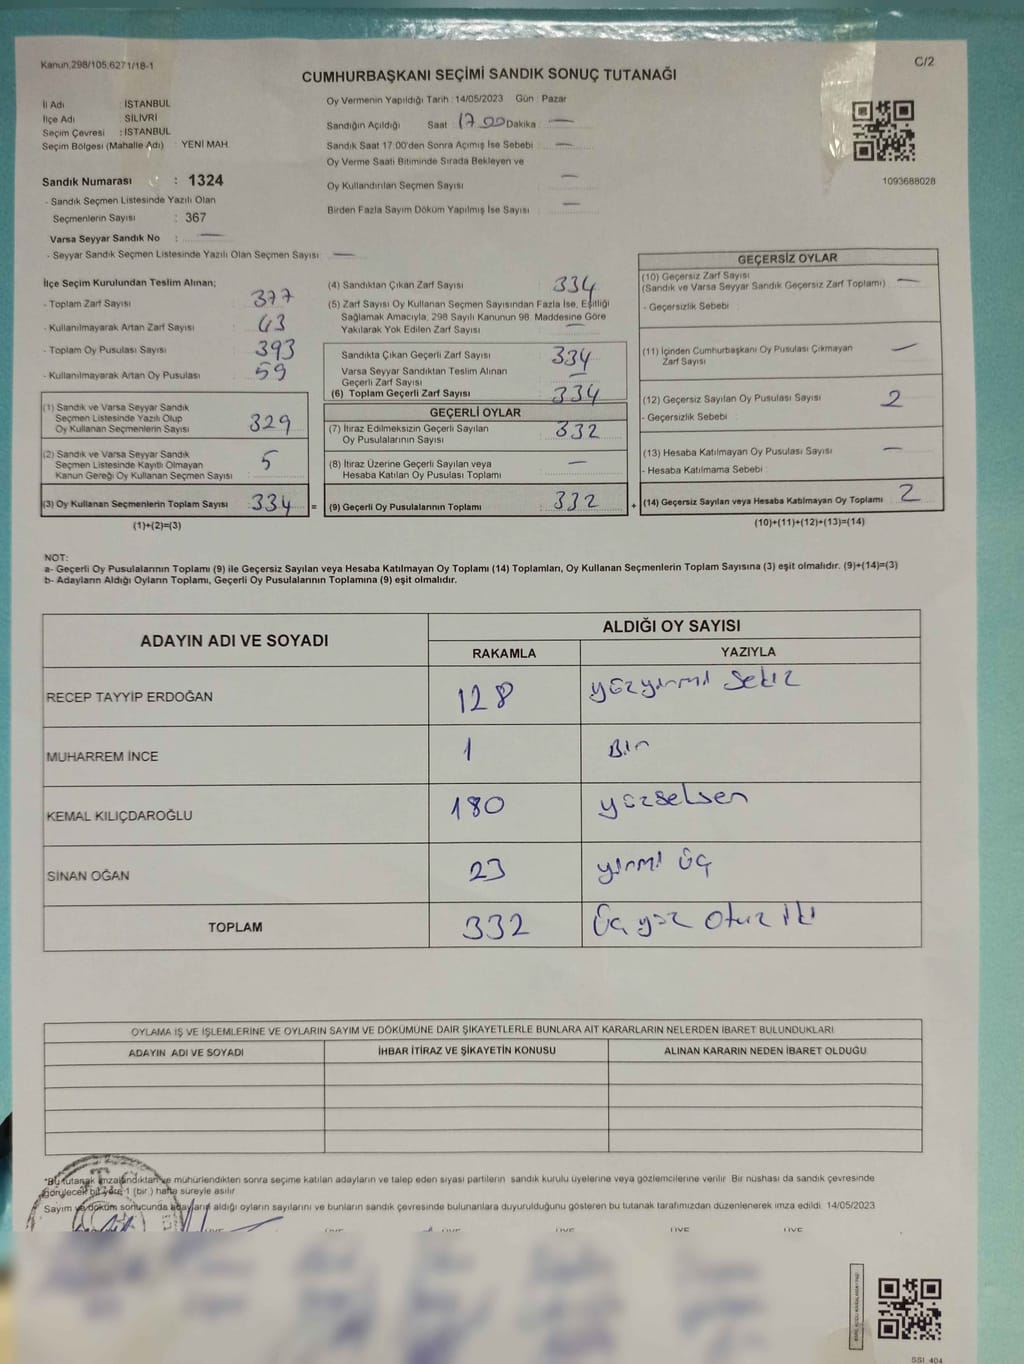 Kanun,298/105,6271/18-1
C/2
CUMHURBAŞKANI SEÇİMİ SANDIK SONUÇ TUTANAĞI
İl Adı : İSTANBUL
İlçe Adı : SİLİVRİ
Seçim Çevresi : İSTANBUL
Seçim Bölgesi (Mahalle Adı) : YENİ MAH.
Oy Vermenin Yapıldığı Tarih : 14/05/2023 Gün : Pazar
Sandığın Açıldığı Saat : 17 00 Dakika : —
Sandık Saat 17:00'den Sonra Açımış İse Sebebi : —
Oy Verme Saati Bitiminde Sırada Bekleyen ve
Oy Kullandırılan Seçmen Sayısı : —
Birden Fazla Sayım Döküm Yapılmış İse Sayısı : —
1093688028
Sandık Numarası : 1324
- Sandık Seçmen Listesinde Yazılı Olan
Seçmenlerin Sayısı : 367
Varsa Seyyar Sandık No : —
- Seyyar Sandık Seçmen Listesinde Yazılı Olan Seçmen Sayısı : —
İlçe Seçim Kurulundan Teslim Alınan;
- Toplam Zarf Sayısı : 377
- Kullanılmayarak Artan Zarf Sayısı : 43
- Toplam Oy Pusulası Sayısı : 393
- Kullanılmayarak Artan Oy Pusulası : 59
(1) Sandık ve Varsa Seyyar Sandık
Seçmen Listesinde Yazılı Olup
Oy Kullanan Seçmenlerin Sayısı : 329
(2) Sandık ve Varsa Seyyar Sandık
Seçmen Listesinde Kayıtlı Olmayan
Kanun Gereği Oy Kullanan Seçmen Sayısı : 5
(3) Oy Kullanan Seçmenlerin Toplam Sayısı : 334 =
(1)+(2)=(3)
(4) Sandıktan Çıkan Zarf Sayısı : 334
(5) Zarf Sayısı Oy Kullanan Seçmen Sayısından Fazla İse, Eşitliği
Sağlamak Amacıyla, 298 Sayılı Kanunun 98. Maddesine Göre
Yakılarak Yok Edilen Zarf Sayısı : —
Sandıkta Çıkan Geçerli Zarf Sayısı : 334
Varsa Seyyar Sandıktan Teslim Alınan
Geçerli Zarf Sayısı : —
(6) Toplam Geçerli Zarf Sayısı : 334
GEÇERLİ OYLAR
(7) İtiraz Edilmeksizin Geçerli Sayılan
Oy Pusulalarının Sayısı : 332
(8) İtiraz Üzerine Geçerli Sayılan veya
Hesaba Katılan Oy Pusulası Toplamı : —
(9) Geçerli Oy Pusulalarının Toplamı : 332 +
GEÇERSİZ OYLAR
(10) Geçersiz Zarf Sayısı
(Sandık ve Varsa Seyyar Sandık Geçersiz Zarf Toplamı) : —
- Geçersizlik Sebebi :
(11) İçinden Cumhurbaşkanı Oy Pusulası Çıkmayan
Zarf Sayısı : —
(12) Geçersiz Sayılan Oy Pusulası Sayısı : 2
- Geçersizlik Sebebi :
(13) Hesaba Katılmayan Oy Pusulası Sayısı : —
- Hesaba Katılmama Sebebi :
(14) Geçersiz Sayılan veya Hesaba Katılmayan Oy Toplamı : 2
(10)+(11)+(12)+(13)=(14)
NOT:
a- Geçerli Oy Pusulalarının Toplamı (9) ile Geçersiz Sayılan veya Hesaba Katılmayan Oy Toplamı (14) Toplamları, Oy Kullanan Seçmenlerin Toplam Sayısına (3) eşit olmalıdır. (9)+(14)=(3)
b- Adayların Aldığı Oyların Toplamı, Geçerli Oy Pusulalarının Toplamına (9) eşit olmalıdır.
ADAYIN ADI VE SOYADI
ALDIĞI OY SAYISI
RAKAMLA YAZIYLA
RECEP TAYYİP ERDOĞAN 128 yüzyirmi sekiz
MUHARREM İNCE 1 Bir
KEMAL KILIÇDAROĞLU 180 yüzseksen
SİNAN OĞAN 23 yirmi üç
TOPLAM 332 Üç yüz otuz iki
OYLAMA İŞ VE İŞLEMLERİNE VE OYLARIN SAYIM VE DÖKÜMÜNE DAİR ŞİKAYETLERLE BUNLARA AİT KARARLARIN NELERDEN İBARET BULUNDUKLARI
ADAYIN ADI VE SOYADI İHBAR İTİRAZ VE ŞİKAYETİN KONUSU ALINAN KARARIN NEDEN İBARET OLDUĞU
*Bu tutanak imzalandıktan ve mühürlendikten sonra seçime katılan adayların ve talep eden siyasi partilerin sandık kurulu üyelerine veya gözlemcilerine verilir. Bir nüshası da sandık çevresinde
görülecek bir yere 1 (bir ) hafta süreyle asılır.
Sayım ve döküm sonucunda adayların aldığı oyların sayılarını ve bunların sandık çevresinde bulunanlara duyurulduğunu gösteren bu tutanak tarafımızdan düzenlenerek imza edildi. 14/05/2023
SSI: 404